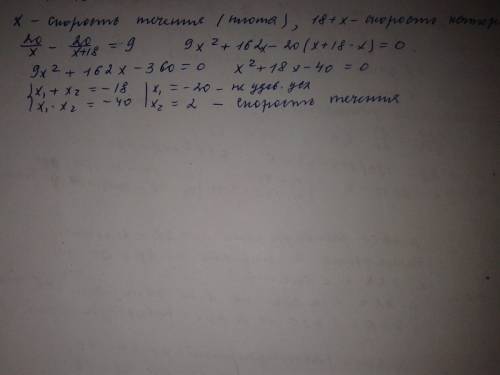 x - скорость течения (плота), 18+x - скорость катер
20/x - 20/(x+18) = 9    9x² + 162x - 20(x+18-x) = 0
9x² + 162x - 360 = 0    x² + 18x - 40 = 0
{ x₁ + x₂ = -18 | x₁ = -20 - не удов. усл
{ x₁ · x₂ = -40 | x₂ = 2 - скорость течения